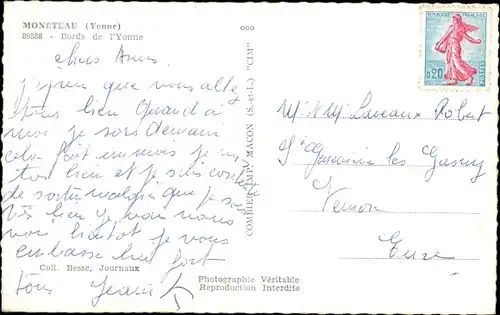 MONETEAU (Yonne)
89588 - Bords de l'Yonne
chers Amis
j'espère que vous allez
tous bien Quand à
moi je sors demain
cela fait un mois je
bien et je suis
de sortir malgré que je suis
très bien je vais vous
voir bientôt je vous
embrasse bien fort
tous
Coll. Besse, Journaux
COMBIER IMP. MACON (S.-et-L.) "CIM"
Photographie Véritable
Reproduction Interdite
REPUBLIQUE FRANÇAISE
0,20
POSTES
M. & Mme Robert
Ste Geneviève les Gasny
Vernon
Eure